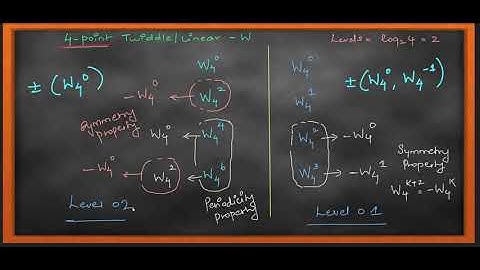 4-point Twiddle/Linear - W
Levels = log₂4 = 2
± (W₄⁰)
W₄⁰
-W₄⁰ ← W₄²
Symmetry property
W₄⁰ ← W₄⁴
-W₄⁰ ← W₄² ← W₄⁶
Level 02
Periodicity Property
W₄⁰
W₄¹
W₄² → -W₄⁰
W₄³ → -W₄¹
Level 01
± (W₄⁰, W₄⁻¹)
Symmetry Property
W₄ᴷ⁺² = -W₄ᴷ